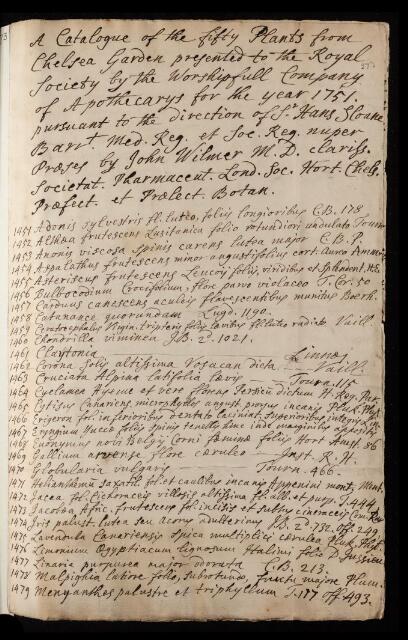 A Catalogue of the fifty Plants from
Chelsea Garden presented to the Royal
Society by the Worshipfull Company
of Apothecarys for the year 1751.
pursuant to the direction of Sr. Hans Sloane
Barrt. Med. Reg. et Soc. Reg. nuper
Præses by John Wilmer M.D. clariss.
Societat. Pharmaceut. Lond. Soc. Hort. Chels.
Præfect. et Prælect. Botan.
1451 Adonis sylvestris fl. luteo, foliis longioribus C.B. 178
1452 Althæa frutescens Lusitanica folio rotundiori undulato Tourn
1453 Anonis viscosa spinis carens lutea major C.B.P.
1454 Aspalathus frutescens minor angustifolius cort. aureo Amman
1455 Asteriscus frutescens Leucoij foliis, viridibus et splendent.
1456 Bulbocodium Crocifolium, flore parvo violaceo T. Cor. 50
1457 Carduus canescens aculeis flavescentibus munitus Boerh.
1458 Catanance quorundam Lugd. 1190.
1459 Ceratocephalus foliis lævibus fl. luteo radiato Vaill.
1460 Chondrilla viminea J.B. 2d. 1021.
1461 Claytonia Linnæi
1462 Corona solis altissima Vosacan dicta Vaill.
1463 Cruciata Alpina latifolia lævis Tourn. 115
1464 Cyclamen hyeme et vere florens Persicum dictum H. Reg. Par.
1465 Cytisus Canariens. microphyllos angust. prorsus incanis Pluk. Phyt.
1466 Erigeron fol. inferioribus dentato laciniat. superioribus integris
1467 Eryngium Yuccæ foliis spinis tenellis hinc inde marginibus
1468 Euonymus novi Belgij Corni fæminæ foliis Hort. Amst. 86
1469 Gallium arvense flore cæruleo Inst. R.H.
1470 Globularia vulgaris Tourn. 466.
1471 Helianthemum saxatile fol. et caulibus incanis Appenini mont. Ment.
1472 Jacea fol. Cichoraceis villosis altissima fl. alb. et purp. T. 444
1473 Jacobæa Afric. frutescens fol. incisis et subtus cineraceis Com. Rar
1474 Iris palust. lutea seu Acorus adulterinus J.B. 2d. 732. Off. 249
1475 Lavendula Canariensis spica multiplici cærulea Pluk. Phyt.
1476 Limonium Ægyptiacum lignosum Halimi folio D. Jussieu
1477 Linaria purpurea major odorata C.B. 213.
1478 Malpighia latiore folio, subrotundo, fructu majore Plum.
1479 Menyanthes palustre et triphyllum T. 117 Off. 493.